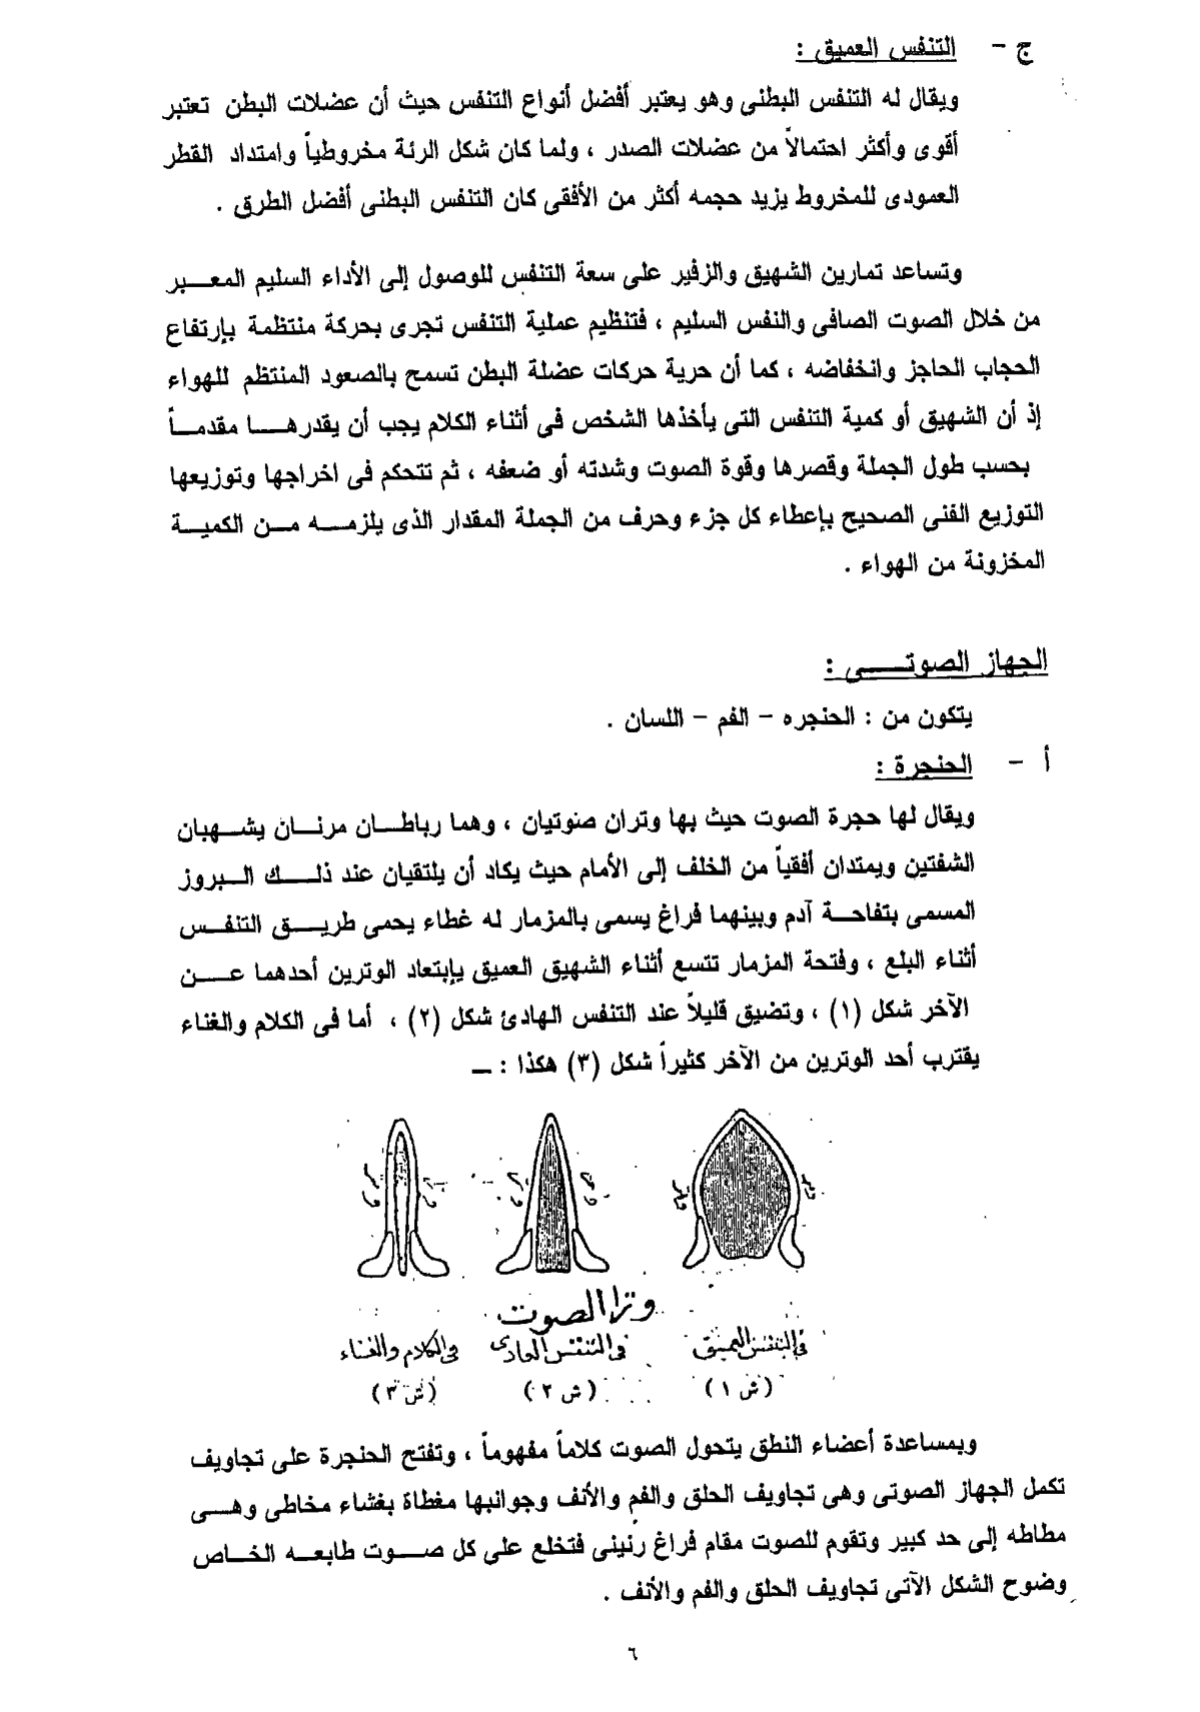 ج - التنفس العميق :
ويقال له التنفس البطنى وهو يعتبر أفضل أنواع التنفس حيث أن عضلات البطن تعتبر
أقوى وأكثر احتمالاً من عضلات الصدر ، ولما كان شكل الرئة مخروطياً وامتداد القطر
العمودى للمخروط يزيد حجمه أكثر من الأفقى كان التنفس البطنى أفضل الطرق .
وتساعد تمارين الشهيق والزفير على سعة التنفس للوصول إلى الأداء السليم المعبر
من خلال الصوت الصافى والنفس السليم ، فتنظيم عملية التنفس تجرى بحركة منتظمة بإرتفاع
الحجاب الحاجز وانخفاضه ، كما أن حرية حركات عضلة البطن تسمح بالصعود المنتظم للهواء
إذ أن الشهيق أو كمية التنفس التى يأخذها الشخص فى أثناء الكلام يجب أن يقدرها مقدماً
بحسب طول الجملة وقصرها وقوة الصوت وشدته أو ضعفه ، ثم تتحكم فى اخراجها وتوزيعها
التوزيع الفنى الصحيح بإعطاء كل جزء وحرف من الجملة المقدار الذى يلزمه من الكمية
المخزونة من الهواء .
الجهاز الصوتى :
يتكون من : الحنجره - الفم - اللسان .
أ - الحنجرة :
ويقال لها حجرة الصوت حيث بها وتران صوتيان ، وهما رباطان مرنان يشهبان
الشفتين ويمتدان أفقياً من الخلف إلى الأمام حيث يكاد أن يلتقيان عند ذلك البروز
المسمى بتفاحة آدم وبينهما فراغ يسمى بالمزمار له غطاء يحمى طريق التنفس
أثناء البلع ، وفتحة المزمار تتسع أثناء الشهيق العميق بإبتعاد الوترين أحدهما عن
الآخر شكل (١) ، وتضيق قليلاً عند التنفس الهادئ شكل (٢) ، أما فى الكلام والغناء
يقترب أحد الوترين من الآخر كثيراً شكل (٣) هكذا : ــ
وتر وتر وتر وتر وتر وتر
وترا الصوت
فى التنفس العميق فى التنفس العادى فى الكلام والغناء
(ش ١) (ش ٢) (ش ٣)
وبمساعدة أعضاء النطق يتحول الصوت كلاماً مفهوماً ، وتفتح الحنجرة على تجاويف
تكمل الجهاز الصوتى وهى تجاويف الحلق والفم والأنف وجوانبها مغطاة بغشاء مخاطى وهى
مطاطه إلى حد كبير وتقوم للصوت مقام فراغ رنينى فتخلع على كل صوت طابعه الخاص
وضوح الشكل الآتى تجاويف الحلق والفم والأنف .
٦